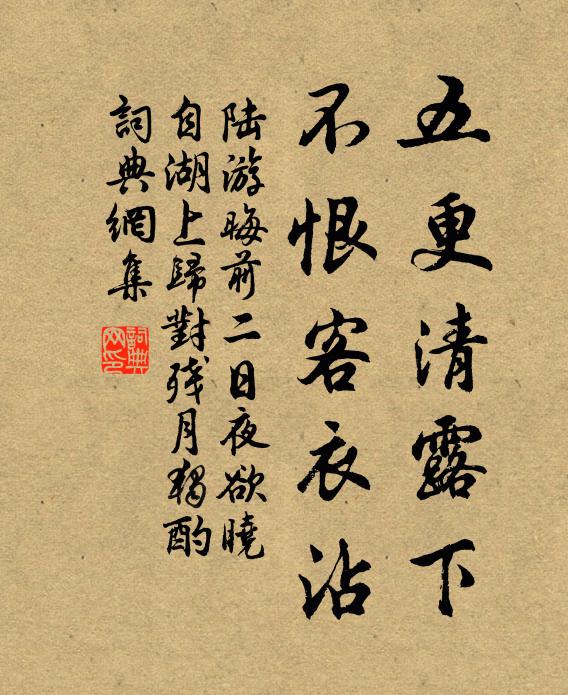 五更清露下
不恨客衣沾
陆游晦前二日夜欲曉
自湖上歸對殘月獨酌
詞典網集
詞典网印